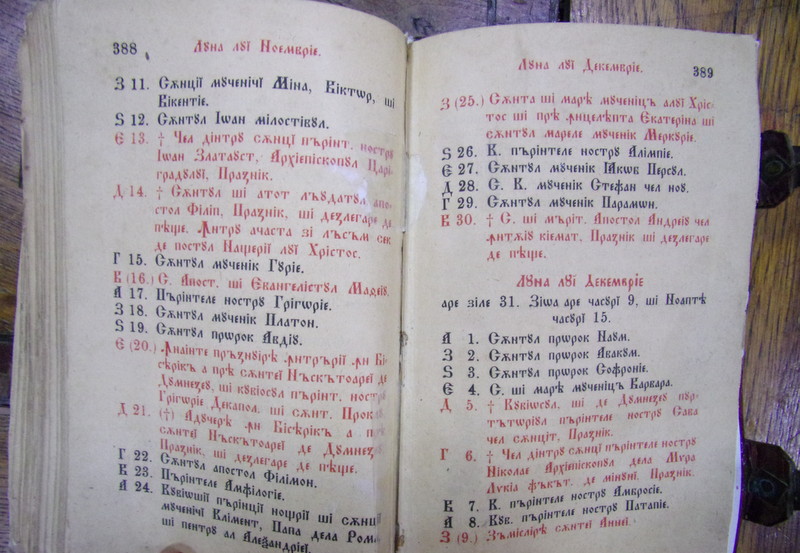 388
Лꙋна лꙋї Ноемврїе.
З 11. Сѫнції мꙋченічї Міна, Віктѡр, ші
Вікентіе.
Ѕ 12. Сѫнтꙋл Іѡан мілостівꙋл.
Є 13. † Чел дінтрꙋ сѫнції пърінт. нострꙋ
Іѡан Златаꙋст, Архіепіскопꙋл Царі-
градꙋлꙋї, Празнік.
Д 14. † Сѫнтꙋл ші атот лъꙋдатꙋл апо-
стол Філіп, Празнік, ші дезлегаре де
пѣще. Ꙟтрꙋ ачаста зі лъсъм сек
де постꙋл Нащерїї лꙋї Хрістос.
Г 15. Сѫнтꙋл мꙋченік Гꙋріе.
В (16.) С. Апост. ші Євангелістꙋл Матеіꙋ.
А 17. Пърінтеле нострꙋ Грігѡріе.
З 18. Сѫнтꙋл мꙋченік Платон.
Ѕ 19. Сѫнтꙋл прѡрок Авдіꙋ.
Є (20.) Ꙟнаінте пръзнꙋірѣ ꙟтрърїї ꙟн Бі-
сѣрікъ а прѣ сѫнтеї Нъскътоареї де
Дꙋмнезеꙋ, ші кꙋвіосꙋл пърінт. нострꙋ
Грігѡріе Декапол. ші сѫнт. Прокл.
Д 21. (†) Адꙋчерѣ ꙟн Бісѣрікъ а прѣ
сѫнтеї Нъскътоареї де Дꙋмнезеꙋ,
Празнік, ші дезлегаре де пѣще.
Г 22. Сѫнтꙋл апостол Філімон.
В 23. Пърінтеле Амфілогіе.
А 24. Кꙋвіѡшїї пърінції нощрїї ші сѫнції
мꙋченічї Клімент, Папа дела Рома
ші Пентрꙋ ал Алеѯандріеї.
Лꙋна лꙋї Декемвріе.
389
З (25.) Сѫнта ші марѣ мꙋченіцъ алꙋї Хріс-
тос ші прѣ ꙟцелѣпта Екатеріна ші
сѫнтꙋл мареле мꙋченік Меркꙋріе.
Ѕ 26. К. пърінтеле нострꙋ Аліпіе.
Є 27. Сѫнтꙋл мꙋченік Іаковъ Персꙋл.
Д 28. С. К. мꙋченік Стефан чел ноꙋ.
Г 29. Сѫнтꙋл мꙋченік Парамѡн.
В 30. † С. ші мъріт. Апостол Андреіꙋ чел
ꙟтѫіꙋ кіемат, Празнік ші дезлегаре
де пѣще.
Лꙋна лꙋї Декемвріе
аре зіле 31. Зіѡа аре часꙋрї 9, ші Ноаптѣ
часꙋрї 15.
А 1. Сѫнтꙋл прѡрок Наꙋм.
З 2. Сѫнтꙋл прѡрок Авакꙋм.
Ѕ 3. Сѫнтꙋл прѡрок Софроніе.
Є 4. С. ші марѣ мꙋченіцъ Варвара.
Д 5. † Кꙋвіѡсꙋл, ші де Дꙋмнезеꙋ пꙋр-
тътѡрїꙋл пърінтеле нострꙋ Сава
чел сѫнціт. Празнік.
Г 6. † Чел дінтрꙋ сѫнції пърінтеле нострꙋ
Ніколае Архіепіскопꙋл дела Міра
Лікіа фъкът. де мінꙋнї. Празнік.
В 7. К. пърінтеле нострꙋ Амвросіе.
А 8. Кꙋв. пърінтеле нострꙋ Патапіе.
З (9.) Зъмісліреѣ сѫнтеї Аннеї.